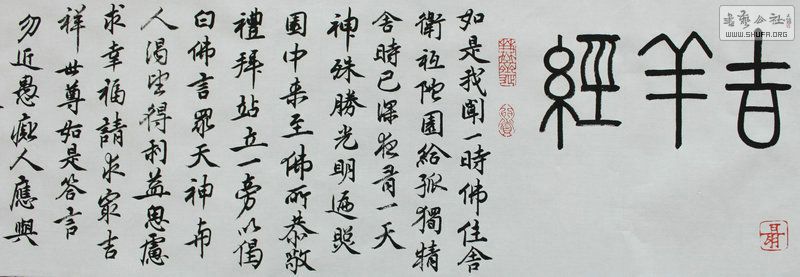 書藝公社
WWW.SHUFA.ORG
吉羊經
如是我聞一時佛住舍
衛祗陀園給孤獨精
舍時已深夜有一天
神殊勝光明遍照
園中来至佛所恭敬
禮拜站立一旁以偈
白佛言眾天神
人渴望得利益思慮
求幸福請求最吉
祥世尊如是答言
勿近愚癡人應與